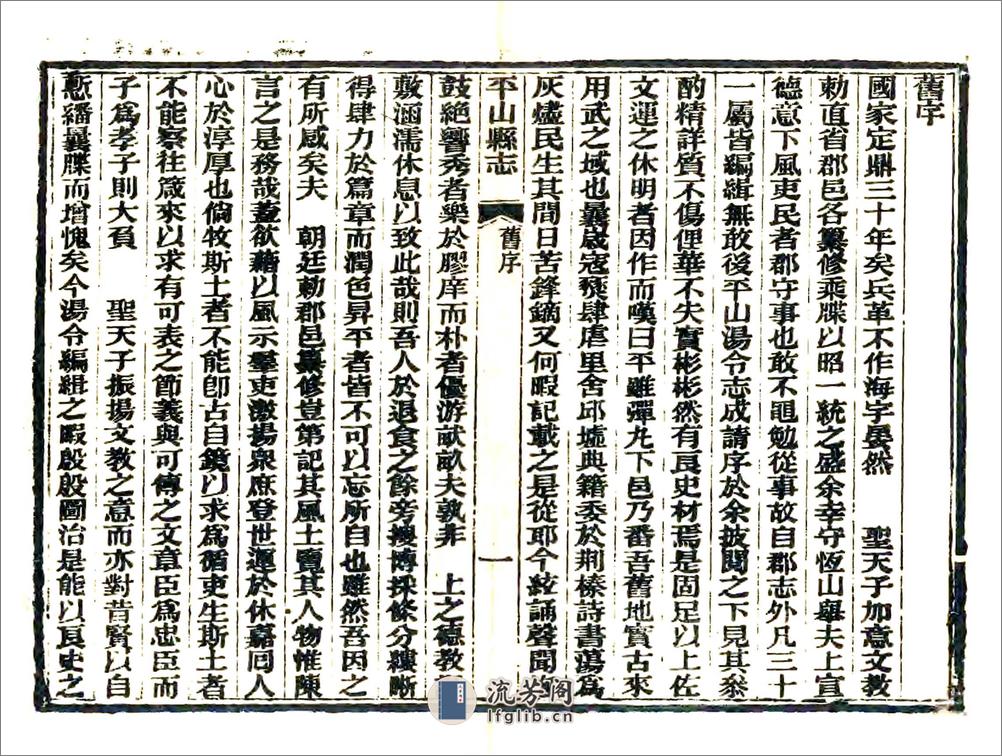 舊序
國家定鼎三十年矣兵革不作海宇晏然　聖天子加意文教
勅直省郡邑各纂修乘牒以昭一統之盛余幸守恆山舉夫上宣
德意下風吏民者郡守事也敢不黽勉從事故自郡志外凡三十
一屬皆編緝無敢後平山湯令志成請序於余披閱之下見其叅
酌精詳質不傷俚華不失實彬彬然有良史材焉是固足以上佐
文運之休明者因作而嘆曰平雖彈丸下邑乃番吾舊地實古來
用武之域也曩歲寇氛肆虐里舍邱墟典籍委於荆榛詩書蕩爲
灰燼民生其間日苦鋒鏑又何暇記載之是從耶今絃誦聲聞
平山縣志
舊序
一
鼓絶響秀者樂於膠庠而朴者優游畎畝夫孰非　上之德教
敷涵濡休息以致此哉則吾人於退食之餘旁搜博採條分縷晰
得肆力於篇章而潤色昇平者皆不可以忘所自也雖然吾因之
有所感矣夫　朝廷勅郡邑纂修豈第記其風土覽其人物惟陳
言之是務哉蓋欲藉以風示羣吏激揚衆庶登世運於休嘉囘人
心於淳厚也倘牧斯土者不能卽占自鏡以求爲循吏生斯土者
不能察往箴來以求有可表之節義與可傳之文章臣爲忠臣而
子爲孝子則大負　聖天子振揚文教之意而亦對昔賢以自
慙繙曩牒而增愧矣今湯令編緝之暇殷殷圖治是能以良史之
流芳阁
lfglib.cn